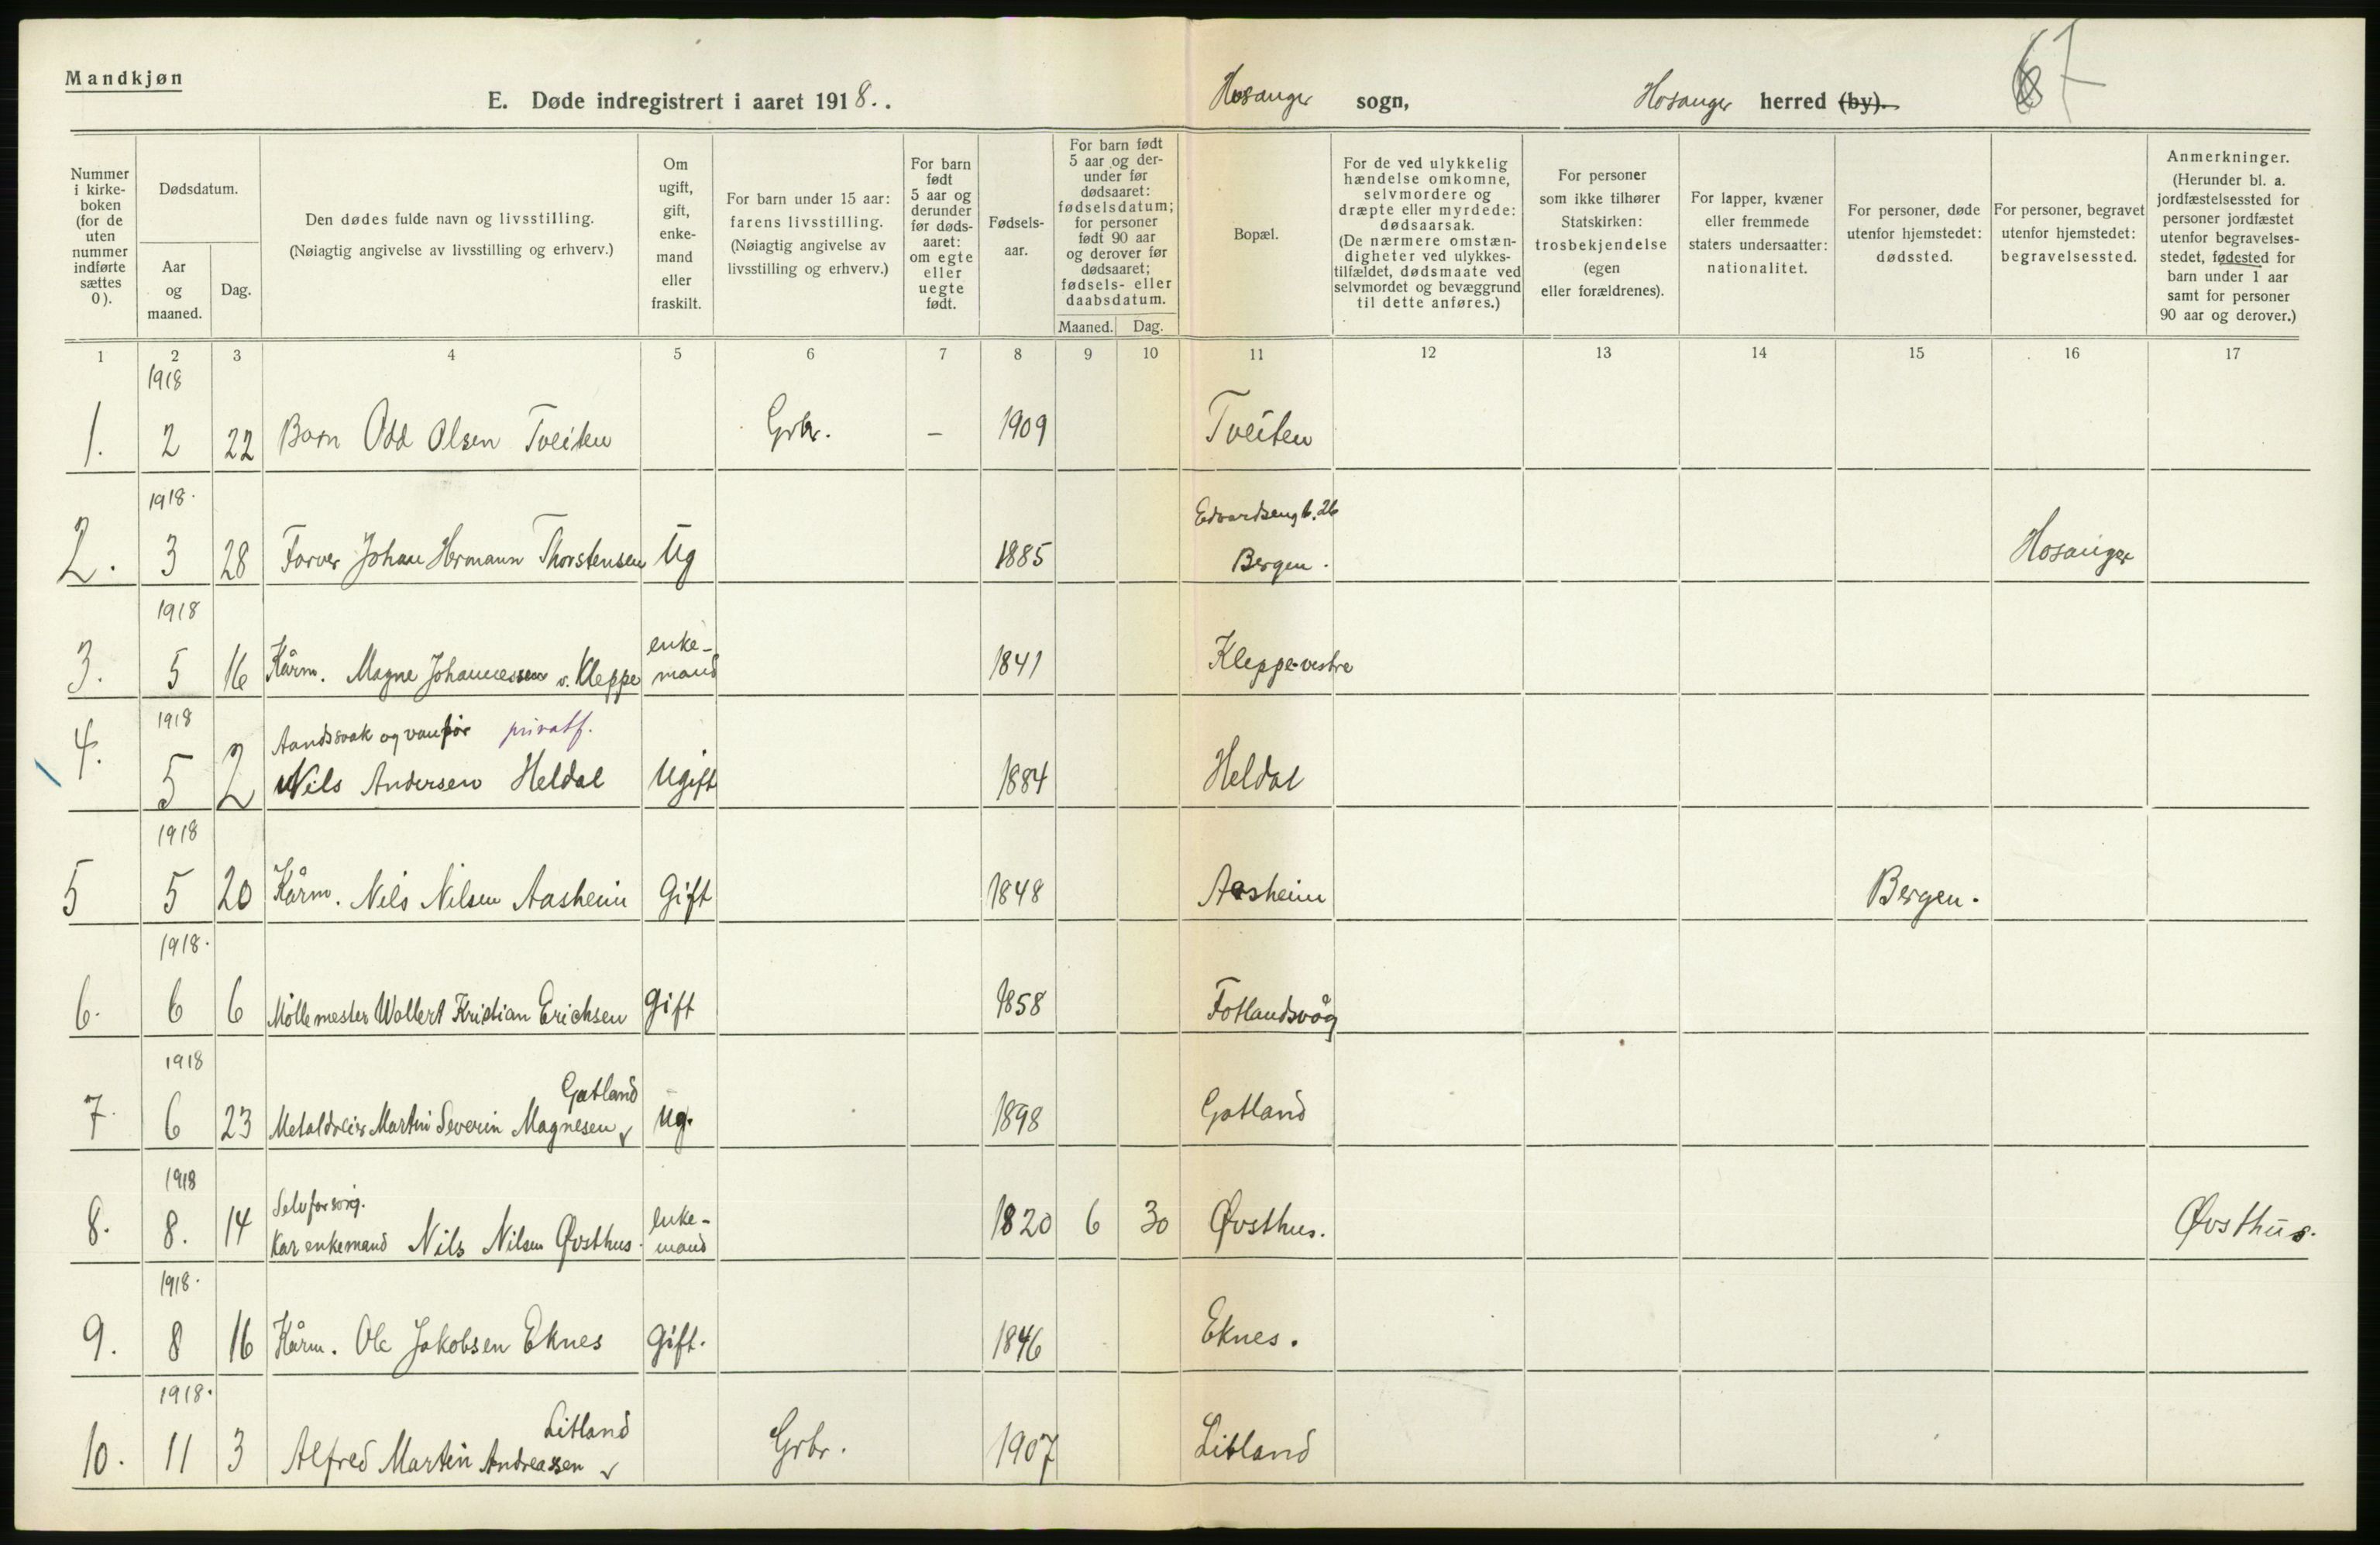 Mandkjøn
E. Døde indregistrert i aaret 1918. .
Hosanger sogn,
Hosanger herred (by).
67
Nummer i kirke- boken (for de uten nummer indførte sættes 0).
Dødsdatum.
Aar og maaned.
Dag.
Den dødes fulde navn og livsstilling.
(Nøiagtig angivelse av livsstilling og erhverv.)
Om ugift, gift, enke- mand eller fraskilt.
For barn under 15 aar: farens livsstilling. (Nøiagtig angivelse av livsstilling og erhverv.)
For barn født 5 aar og derunder før døds- aaret: om egte eller uegte født.
Fødsels- aar.
For barn født 5 aar og der- under før dødsaaret: fødselsdatum; for personer født 90 aar og derover før dødsaaret; fødsels- eller daabsdatum.
Maaned. Dag.
Bopæl.
For de ved ulykkelig hændelse omkomne, selvmordere og dræpte eller myrdede: dødsaarsak. (De nærmere omstæn- digheter ved ulykkes- tilfældet, dødsmaate ved selvmordet og bevæggrund til dette anføres.)
For personer som ikke tilhører Statskirken: trosbekjendelse (egen eller forældrenes).
For lapper, kvæner eller fremmede staters undersaatter: nationalitet.
For personer, døde utenfor hjemstedet: dødssted.
For personer, begravet utenfor hjemstedet: begravelsessted.
Anmerkninger. (Herunder bl. a. jordfæstelsessted for personer jordfæstet utenfor begravelses- stedet, fødested for barn under 1 aar samt for personer 90 aar og derover.)
1 2 3 4 5 6 7 8 9 10 11 12 13 14 15 16 17
1918
1. 2 22 Barn Odd Olsen Tveiten Grbr. – 1909 Tveiten
1918. Edvardseng b. 26
2. 3 28 Farver Johan Hermann Thorstensen Ug 1885 Bergen. Hosanger
1918 enke-
3. 5 16 Kårm. Magne Johannessen v. Kleppe mand 1841 Kleppe vestre
1918 Aandssvak og vanfør privatf.
4. 5 2 Nils Andersen Heldal Ugift 1884 Heldal
1918
5 5 20 Kårm. Nils Nilsen Aasheim Gift 1848 Aasheim Bergen.
1918.
6. 6 6 Möllemester Wollert Kristian Erichsen Gift 1858 Fotlandsvåg
1918 Gatland
7. 6 23 Metaldreier Martin Severin Magnesen v Ug. 1898 Gatland
1918 Selvforsørg. enke-
8. 8. 14 Kar enkemand Nils Nilsen Øvsthus. mand 1820 6 30 Øvsthus. Øvsthus.
1918.
9. 8 16 Kårm. Ole Jakobsen Eknes Gift. 1846 Eknes.
1918. Litland
10. 11 3 Alfred Martin Andreassen v Grbr. 1907 Litland